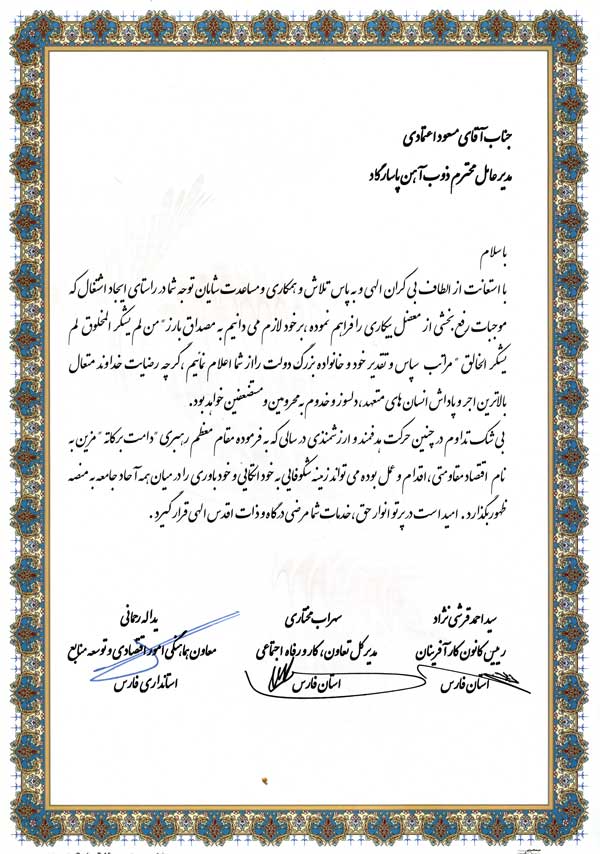 جناب آقای مسعود اعتمادی
مدیر عامل محترم ذوب آهن پاسارگاد
با سلام
با استعانت از الطاف بی کران الهی و به پاس تلاش و همکاری و مساعدت شایان توجه شما در راستای ایجاد اشتغال که
موجبات رفع بخشی از معضل بیکاری را فراهم نموده ، بر خود لازم می دانیم به مصداق بارز " من لم یشکر المخلوق لم
یشکر الخالق " مراتب سپاس و تقدیر خود و خانواده بزرگ دولت را از شما اعلام نمائیم ، گر چه رضایت خداوند متعال
بالاترین اجر و پاداش انسان های متعهد ، دلسوز و خدوم به محرومین و مستضعفین خواهد بود.
بی شک تداوم در چنین حرکت هدفمند و ارزشمندی در سالی که به فرموده مقام معظم رهبری "دامت برکاته" مزین به
نام اقتصاد مقاومتی ، اقدام و عمل بوده می تواند زمینه شکوفایی به خود اتکایی و خود باوری را در میان همه آحاد جامعه به منصه
ظهور بگذارد . امید است در پرتو انوار حق ، خدمات شما مرضی درگاه و ذات اقدس الهی قرار گیرد .
سید احمد قرشی نژاد
رییس کانون کارآفرینان
استان فارس
سهراب مختاری
مدیر کل تعاون ، کار و رفاه اجتماعی
استان فارس
یداله رحمانی
معاون هماهنگی امور اقتصادی و توسعه منابع
استانداری فارس